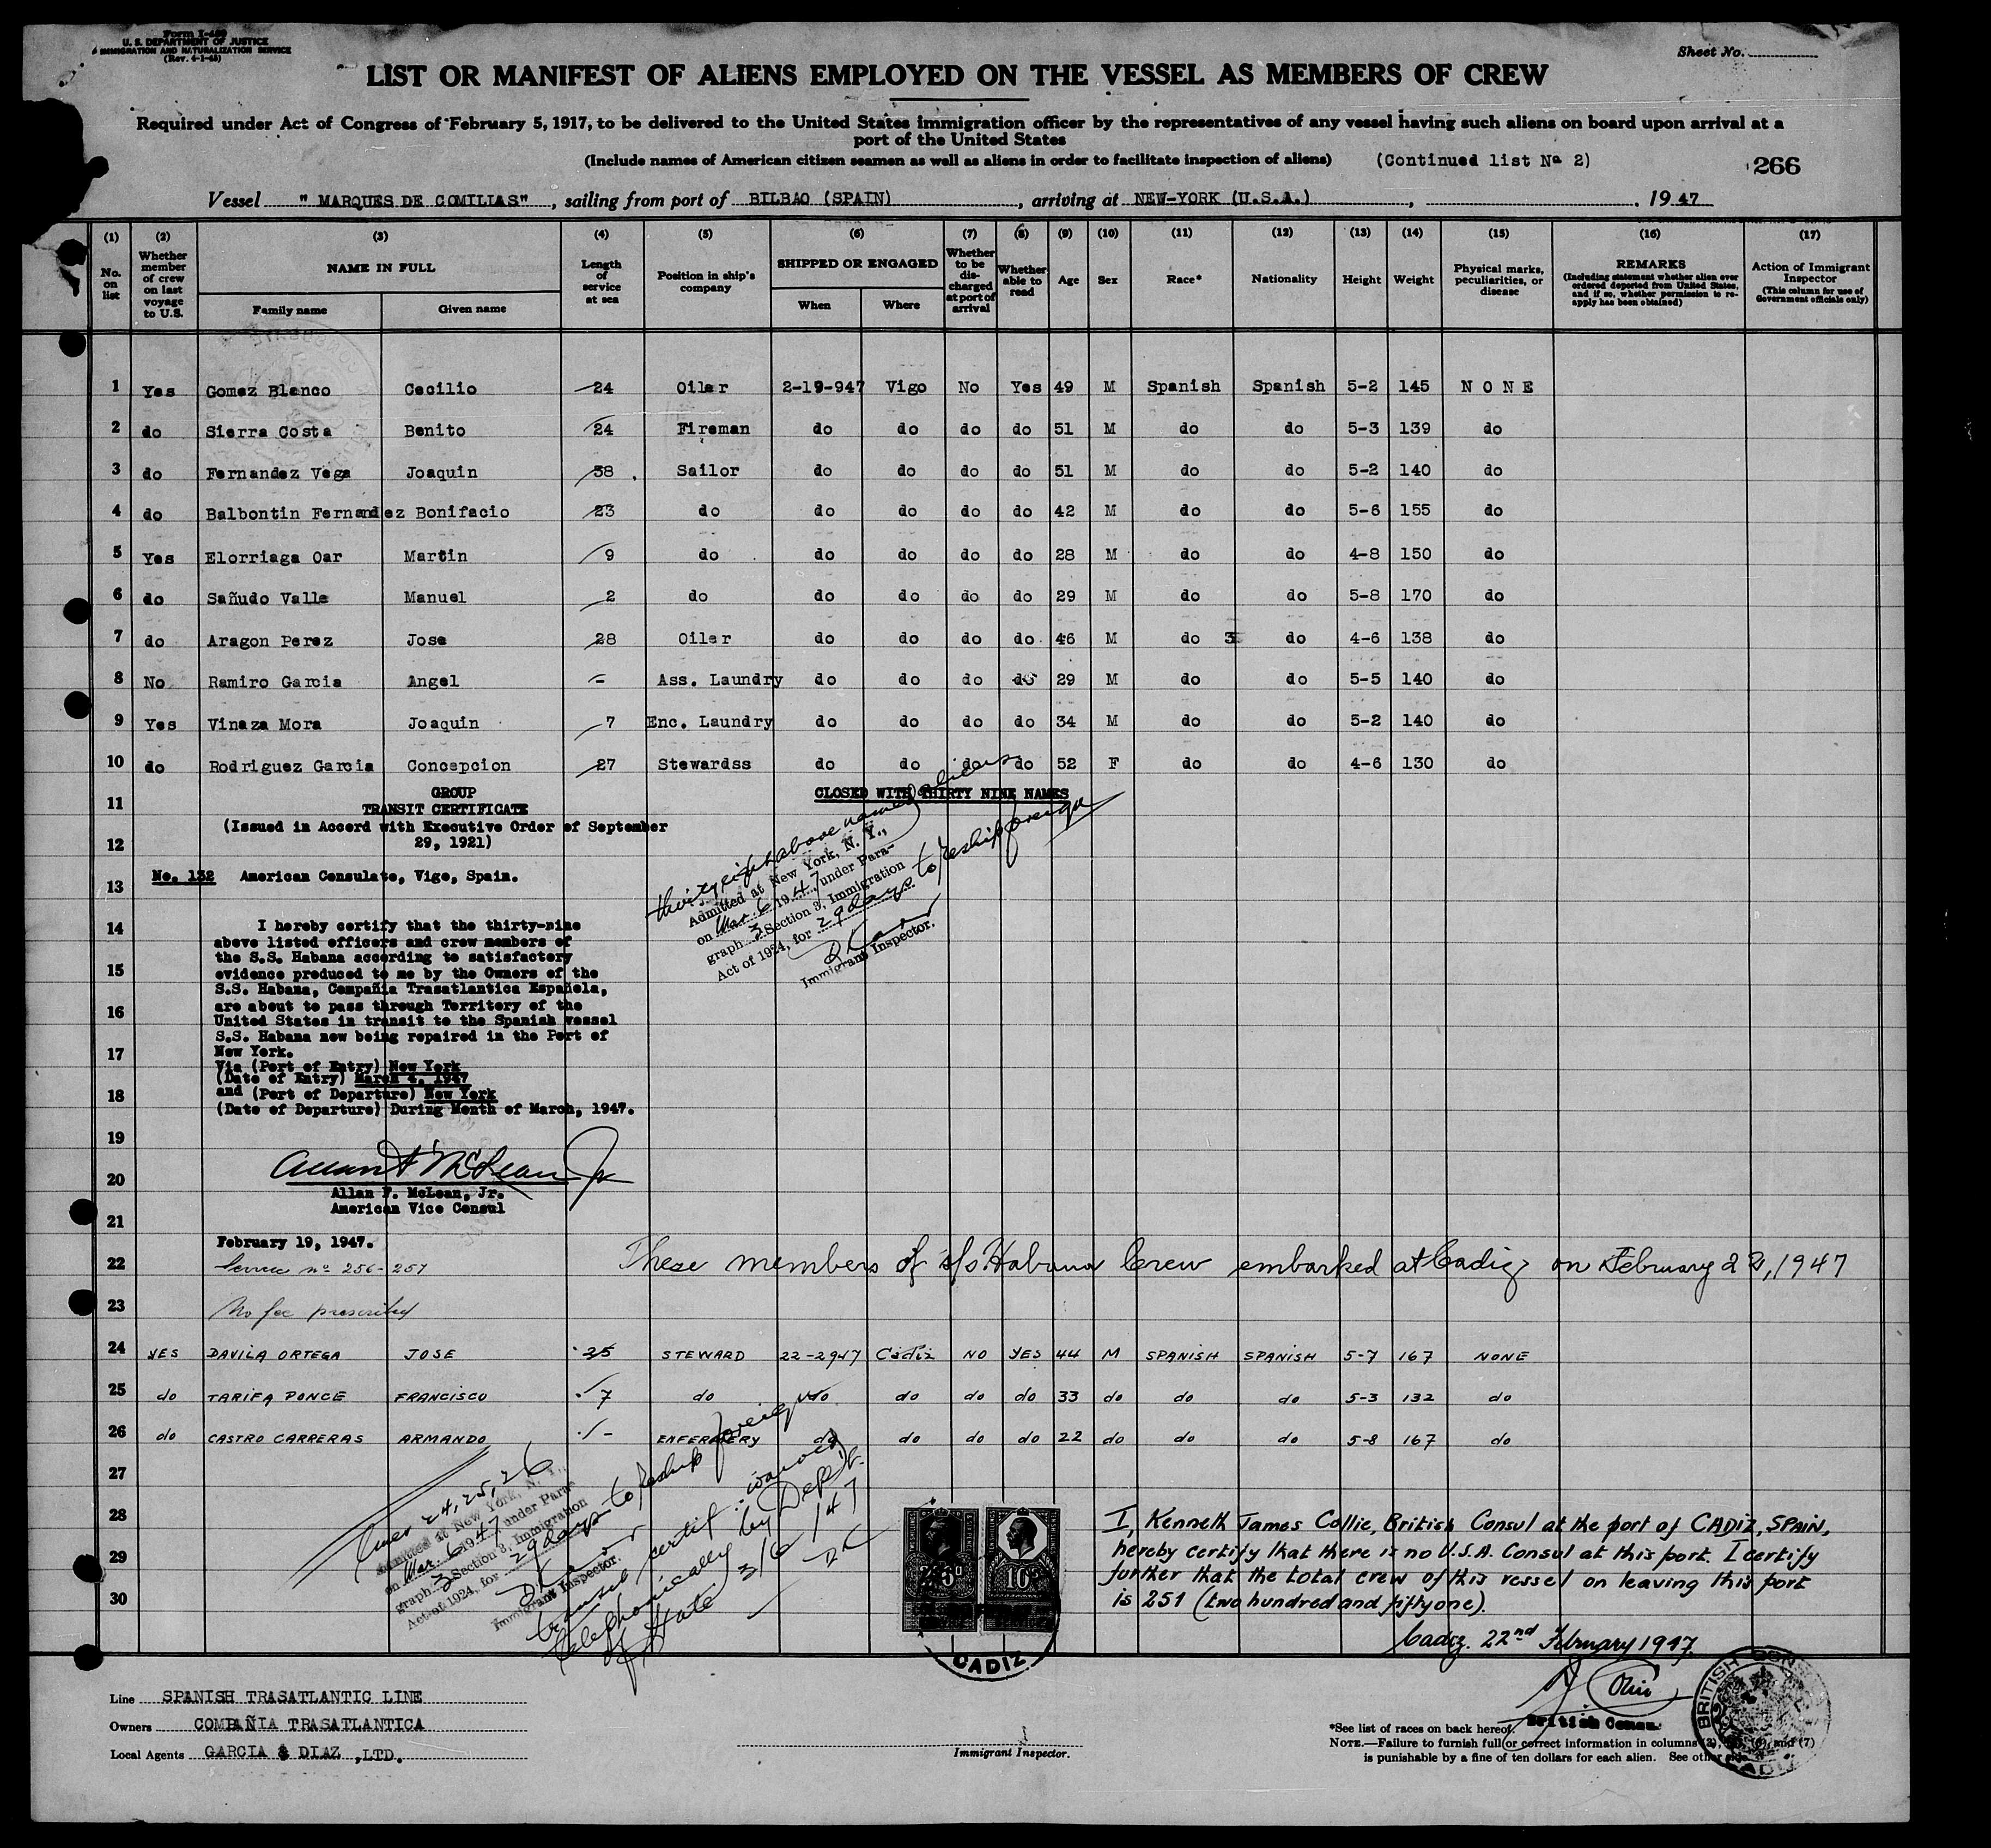 Form I-489
U. S. DEPARTMENT OF JUSTICE
IMMIGRATION AND NATURALIZATION SERVICE
(Rev. 4-1-45)
Sheet No.
LIST OR MANIFEST OF ALIENS EMPLOYED ON THE VESSEL AS MEMBERS OF CREW
Required under Act of Congress of February 5, 1917, to be delivered to the United States immigration officer by the representatives of any vessel having such aliens on board upon arrival at a
port of the United States
(Include names of American citizen seamen as well as aliens in order to facilitate inspection of aliens) (Continued list Nª 2)
266
Vessel " MARQUES DE COMILIAS" , sailing from port of BILBAO (SPAIN) , arriving at NEW-YORK (U.S.A.) , , 1947
(1) (2) (3) (4) (5) (6) (7) (8) (9) (10) (11) (12) (13) (14) (15) (16) (17)
No. on list
Whether member of crew on last voyage to U.S.
NAME IN FULL
Family name Given name
Length of service at sea
Position in ship's company
SHIPPED OR ENGAGED
When Where
Whether to be discharged at port of arrival
Whether able to read
Age
Sex
Race*
Nationality
Height
Weight
Physical marks, peculiarities, or disease
REMARKS
(Including statement whether alien ever ordered deported from United States, and if so, whether permission to reapply has been obtained)
Action of Immigrant Inspector
(This column for use of Government officials only)
1 Yes Gomez Blanco Cecilio 24 Oiler 2-19-947 Vigo No Yes 49 M Spanish Spanish 5-2 145 N O N E
2 do Sierra Costa Benito 24 Fireman do do do do 51 M do do 5-3 139 do
3 do Fernandez Vega Joaquin 38 Sailor do do do do 51 M do do 5-2 140 do
4 do Balbontin Fernandez Bonifacio 23 do do do do do 42 M do do 5-6 155 do
5 Yes Elorriaga Oar Martin 9 do do do do do 28 M do do 4-8 150 do
6 do Sañudo Valle Manuel 2 do do do do do 29 M do do 5-8 170 do
7 do Aragon Perez Jose 28 Oiler do do do do 46 M do do 4-6 138 do
8 No Ramiro Garcia Angel - Ass. Laundry do do do do 29 M do do 5-5 140 do
9 Yes Vinaza Mora Joaquin 7 Enc. Laundry do do do do 34 M do do 5-2 140 do
10 do Rodriguez Garcia Concepcion 27 Stewardss do do do do 52 F do do 4-6 130 do
11
12
13
14
15
16
17
18
19
20
21
22
23
GROUP
TRANSIT CERTIFICATE
(Issued in Accord with Executive Order of September
29, 1921)
No. 132 American Consulate, Vigo, Spain.
I hereby certify that the thirty-nine
above listed officers and crew members of
the S.S. Habana according to satisfactory
evidence produced to me by the Owners of the
S.S. Habana, Compañia Trasatlantica Española,
are about to pass through Territory of the
United States in transit to the Spanish vessel
S.S. Habana now being repaired in the Port of
New York.
Via (Port of Entry) New York
(Date of Entry) March 4, 1947
and (Port of Departure) New York
(Date of Departure) During Month of March, 1947.
Allan F. McLean Jr
Allan F. McLean, Jr.
American Vice Consul
February 19, 1947.
Service nº 256-257
No fee prescribed
CLOSED WITH THIRTY NINE NAMES
thirty eight above named aliens
Admitted at New York, N. Y.,
on Mar. 6 1947 under Para-
graph 3 Section 3, Immigration
Act of 1924, for 29 days to reship foreign
Immigrant Inspector.
These members of s/s Habana Crew embarked at Cadiz on February 22, 1947
24 YES DAVILA ORTEGA JOSE 25 STEWARD 22-2947 Cadiz NO YES 44 M SPANISH SPANISH 5-7 167 NONE
25 do TARIFA PONCE FRANCISCO 7 do do do do do 33 do do do 5-3 132 do
26 do CASTRO CARRERAS ARMANDO - ENFERMERY do do do do 22 do do do 5-8 167 do
27
28
29
30
24, 25, 26
Admitted at New York, N. Y.,
on Mar. 6 1947 under Para-
graph 3 Section 3, Immigration
Act of 1924, for 29 days to reship foreign
Immigrant Inspector.
transit certif. waived
telephonically by Dep't.
of State 3/6/47
10
CADIZ
I, Kenneth James Collie, British Consul at the port of CADIZ, SPAIN,
hereby certify that there is no U.S.A. Consul at this port. I certify
further that the total crew of this vessel on leaving this port
is 251 (two hundred and fiftyone).
Cadiz. 22nd February 1947.
British Consul
BRITISH CONSULATE CADIZ
Line SPANISH TRASATLANTIC LINE
Owners COMPAÑIA TRASATLANTICA
Local Agents GARCIA & DIAZ ,LTD.
Immigrant Inspector.
*See list of races on back hereof.
NOTE.—Failure to furnish full or correct information in columns (3), (6), and (7)
is punishable by a fine of ten dollars for each alien. See other side.